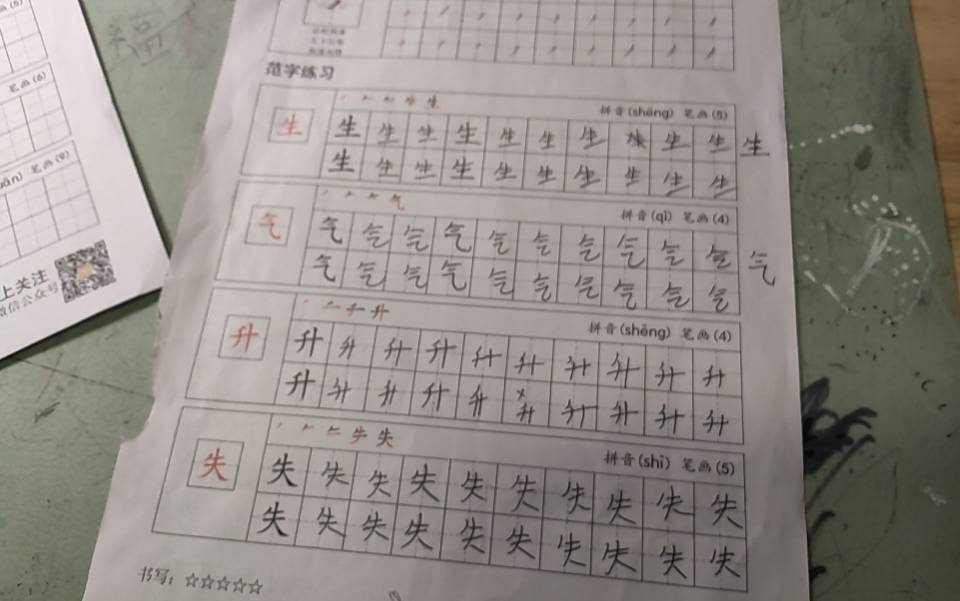 (5)
笔画(6)
uān) 笔画(9)
上关注
微信公众号
福
范字练习
拼音(shēng) 笔画(5)
生 生 生 生 生 生 生 生 生 生 生
生 生 生 生 生 生 生 生 生 生
拼音(qì) 笔画(4)
气 气 气 气 气 气 气 气 气 气 气 气
气 气 气 气 气 气 气 气 气 气
拼音(shēng) 笔画(4)
升 升 升 升 升 升 升 升 升 升 升
升 升 升 升 升 升 升 升 升 升
拼音(shī) 笔画(5)
失 失 失 失 失 失 失 失 失 失 失
失 失 失 失 失 失 失 失 失 失
书写：☆☆☆☆☆